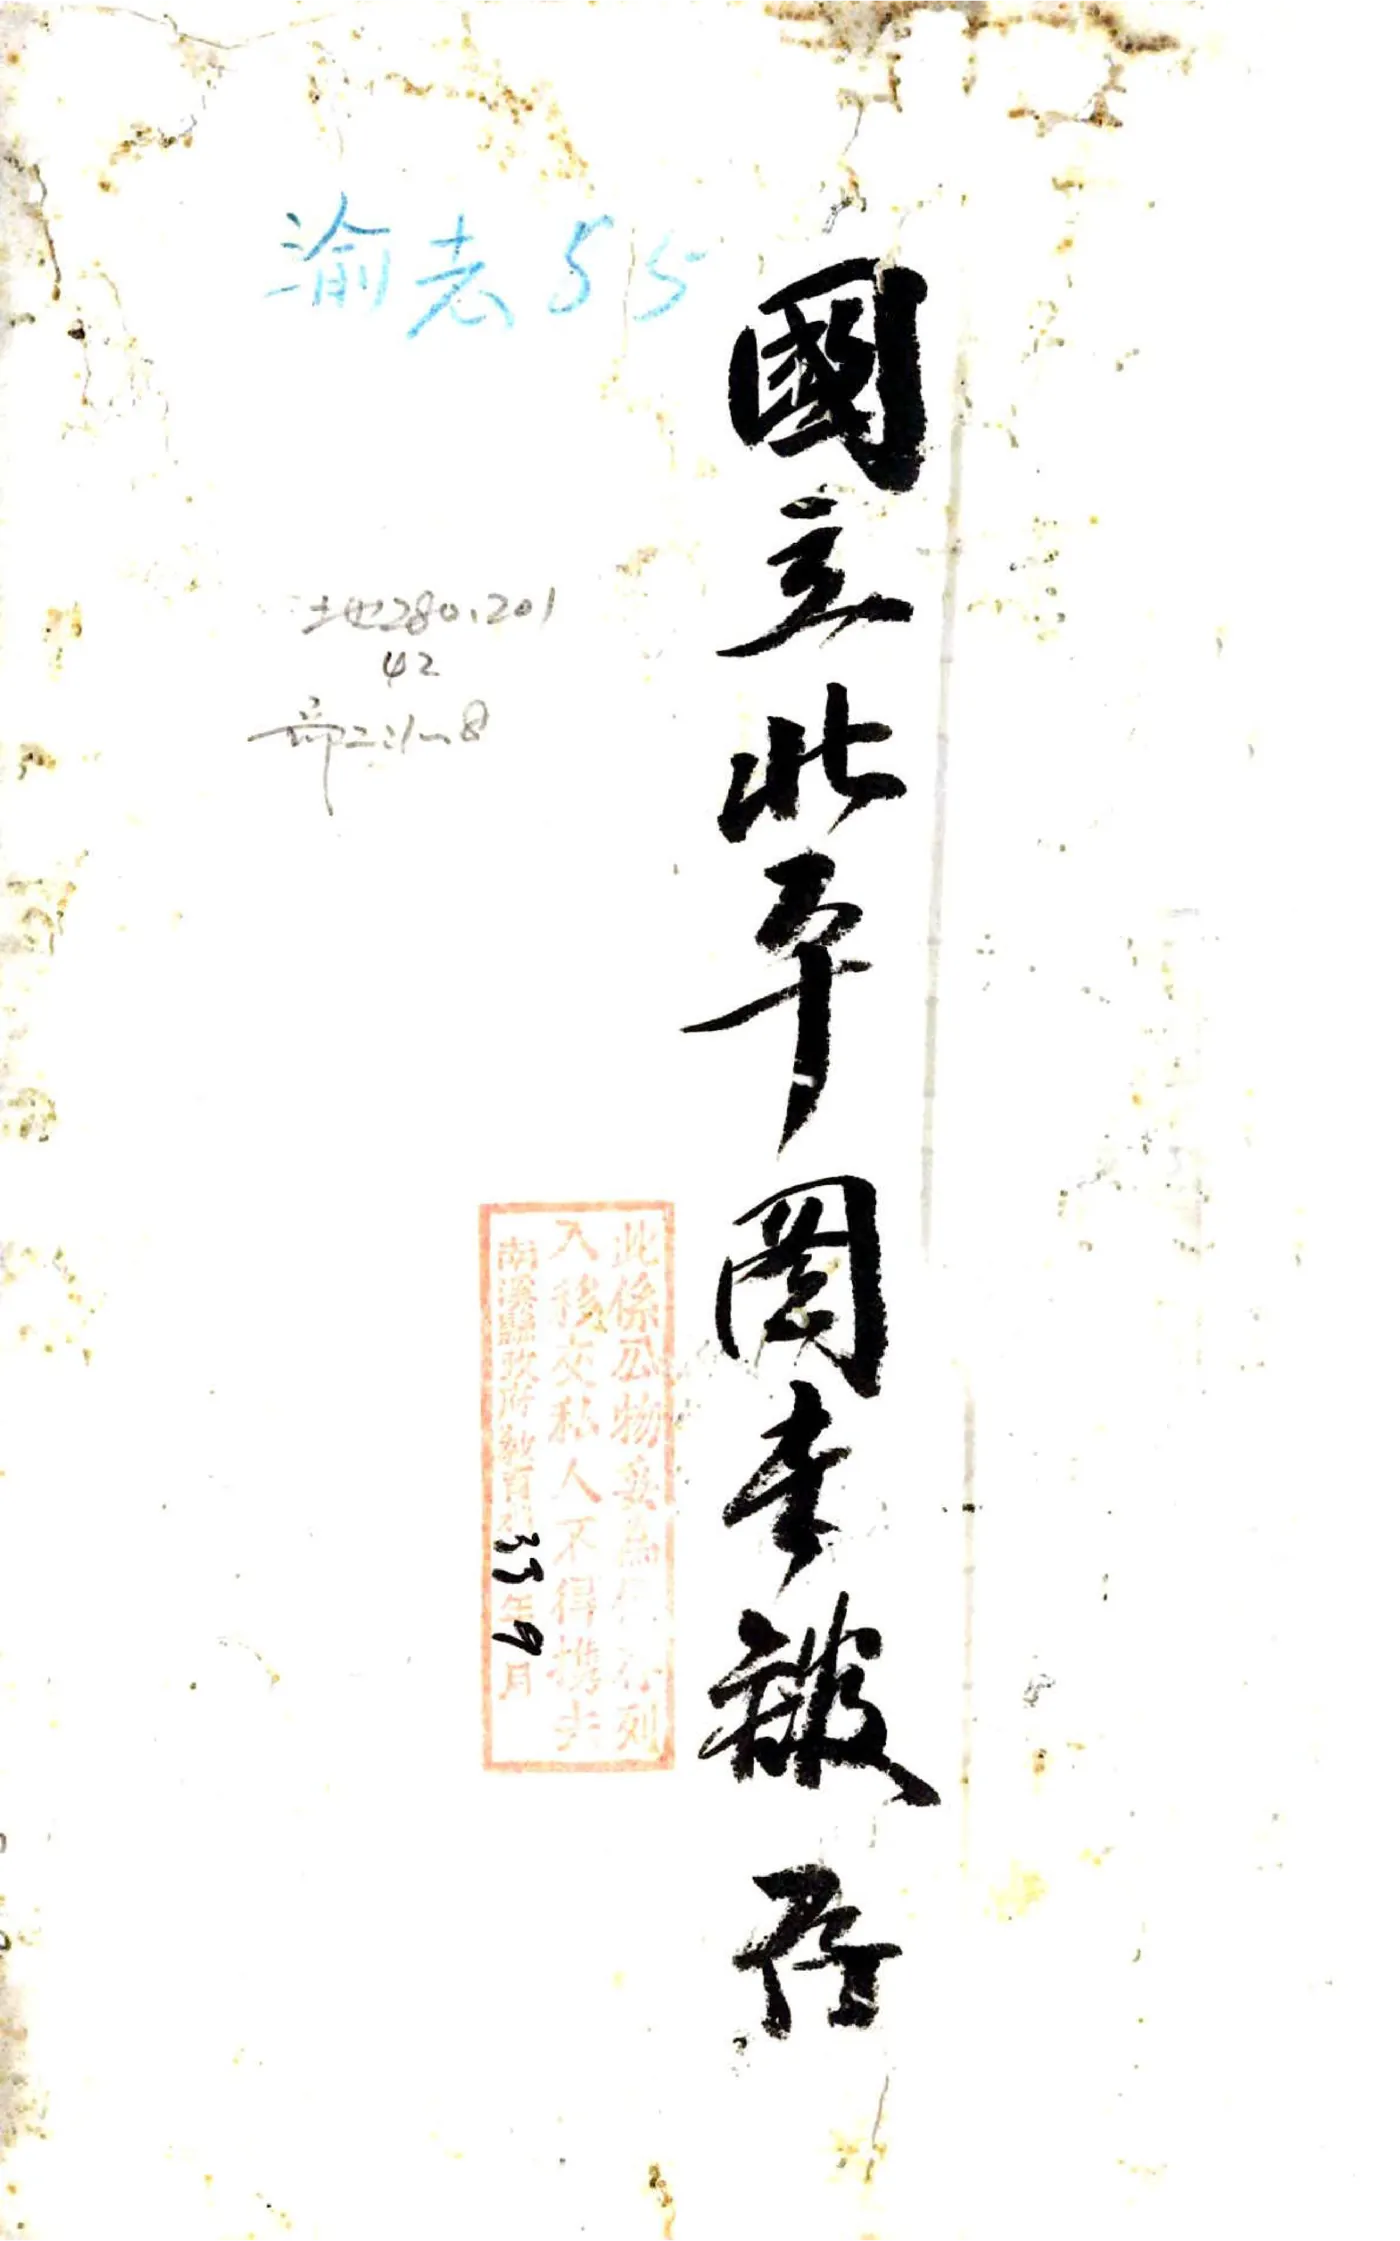 國立北平圖書館存
渝志55
地280.201
42
部二氵一8
此係公物妥為保存列
入移交私人不得携去
南溪縣政府教育科35年9月